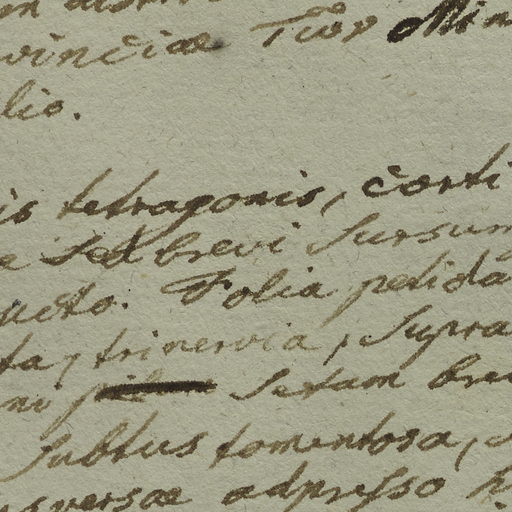 vinciae
lio.
is tetragonis, corti
e sed brevi sursum
acto. Folia petida
ta, trinervia, supra
ni setam bre
subtus tomentosa,
sversae adpresso